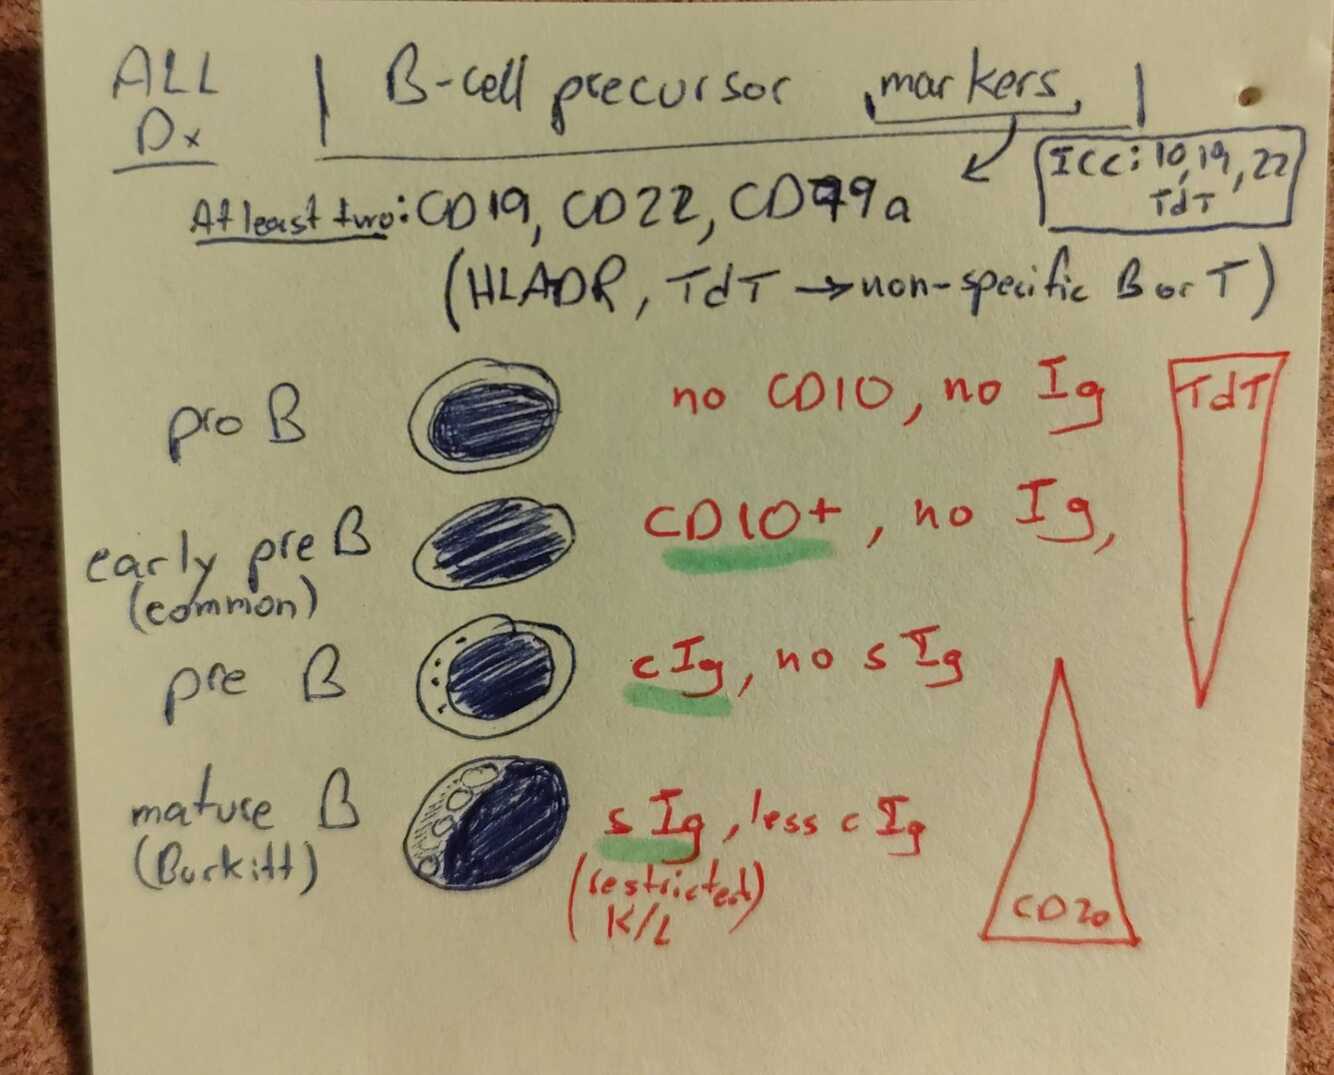 ALL
Dx
B-cell precursor markers
ICC: 10, 19, 22
TdT
At least two: CD19, CD22, CD79a
(HLADR, TdT → non-specific B or T)
pro B
no CD10, no Ig
TdT
early pre B
(common)
CD10+, no Ig,
pre B
cIg, no sIg
mature B
(Burkitt)
sIg, less cIg
(restricted)
K/L
CD20